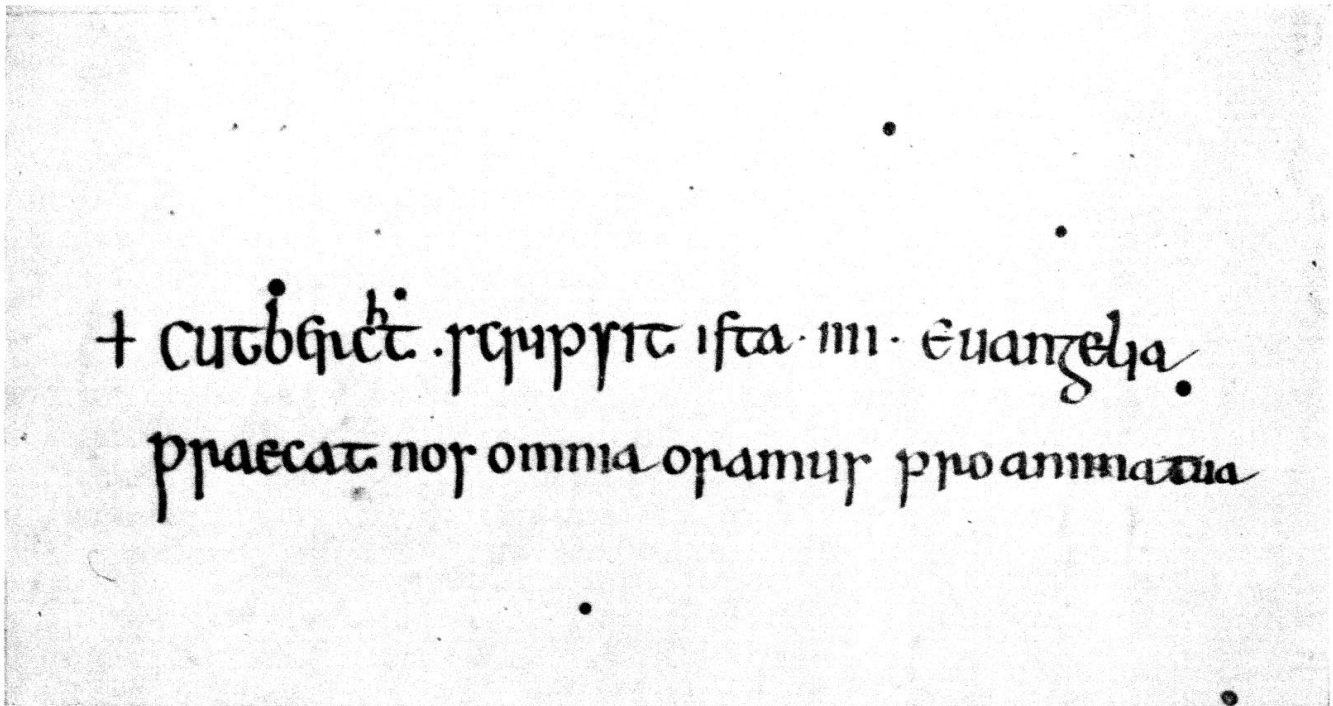 + cutbercht · scripsit ista · IIII · euangelia
praecat nos omnia oramus pro anima tua